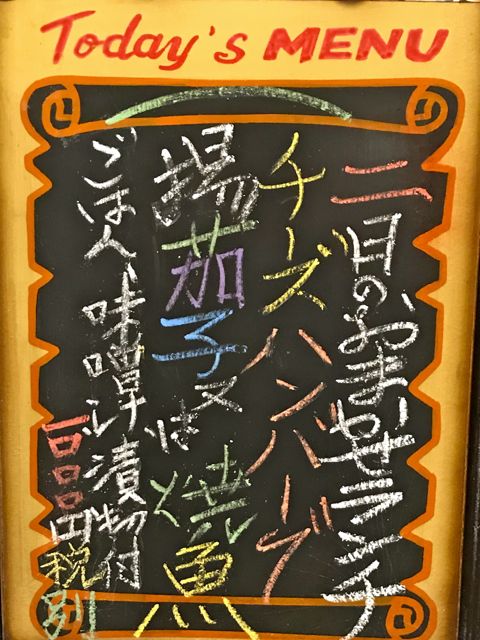 Today's MENU
二日のおまかせランチ
チーズハンバーグ
揚茄子又は焼魚
ごはん、味噌汁、漬物付
1000円税別